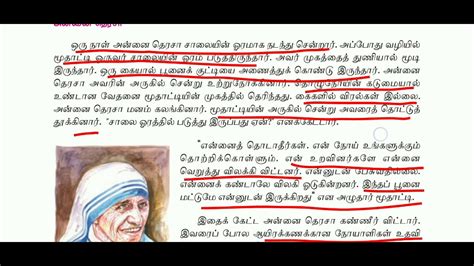 அன்னை தெரசா
ஒரு நாள் அன்னை தெரசா சாலையின் ஓரமாக நடந்து சென்றார். அப்போது வழியில்
மூதாட்டி ஒருவர் சாலையின் ஓரம் படுத்திருந்தார். அவர் முகத்தைத் துணியால் மூடி
இருந்தார். ஒரு கையால் பூனைக் குட்டியை அணைத்துக் கொண்டு இருந்தார். அன்னை
தெரசா அவரின் அருகில் சென்று உற்றுநோக்கினார். தொழுநோயின் கடுமையால்
உண்டான வேதனை மூதாட்டியின் முகத்தில் தெரிந்தது. கைகளில் விரல்கள் இல்லை.
அன்னை தெரசா மனம் கலங்கினார். மூதாட்டியின் அருகில் சென்று அவரைத் தொட்டுத்
தூக்கினார். "சாலை ஓரத்தில் படுத்து இருப்பது ஏன்? எனக்கேட்டார்.
"என்னைத் தொடாதீர்கள். என் நோய் உங்களுக்கும்
தொற்றிக்கொள்ளும். என் உறவினர்களே என்னை
வெறுத்து விலக்கி விட்டனர். என்னுடன் பேசுவதில்லை.
என்னைக் கண்டாலே விலகி ஓடுகின்றனர். இந்தப் பூனை
மட்டுமே என்னுடன் இருக்கிறது" என அழுதார் மூதாட்டி.
இதைக் கேட்ட அன்னை தெரசா கண்ணீர் விட்டார்.
இவரைப் போல ஆயிரக்கணக்கான நோயாளிகள் உதவி